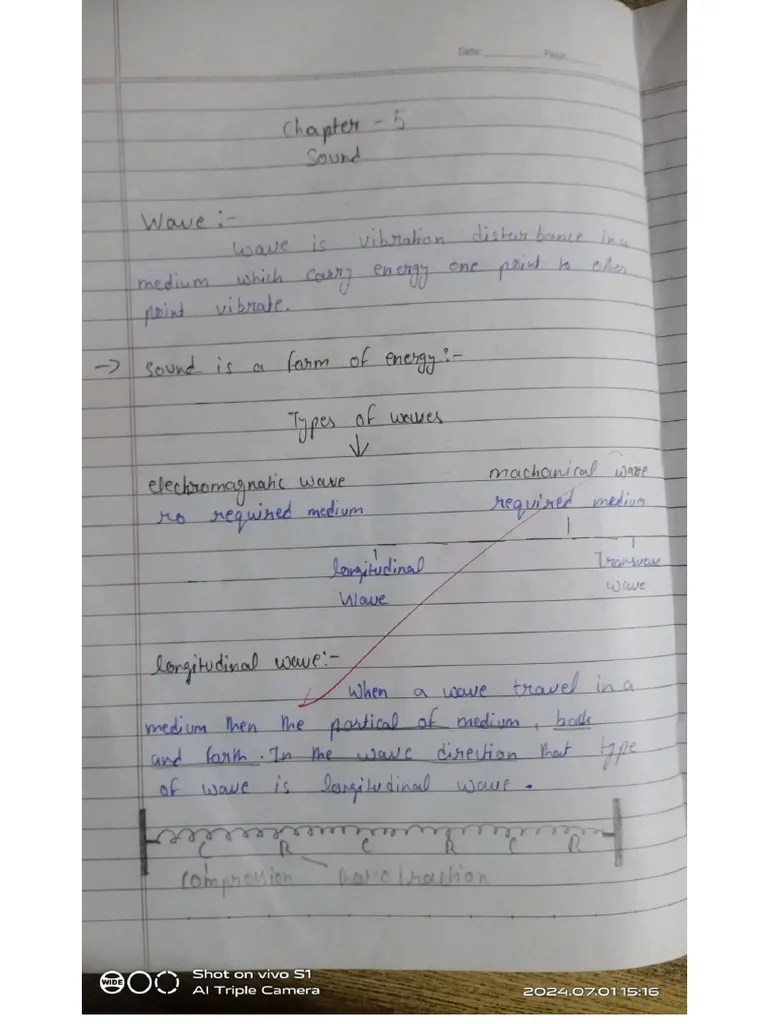 Date: Page:
Chapter - 5
Sound
Wave :-
wave is vibration disturbance in a
medium which carry energy one point to other
point vibrate.
-> Sound is a form of energy:-
Types of waves
↓
electromagnatic wave machanical wave
no required medium required medium
longitudinal Transverse
wave wave
longitudinal wave:-
When a wave travel in a
medium then the partical of medium, back
and form. In the wave direction that type
of wave is longitudinal wave.
C R C R C R
compression
WIDE Shot on vivo S1
AI Triple Camera 2024.07.01 15:16